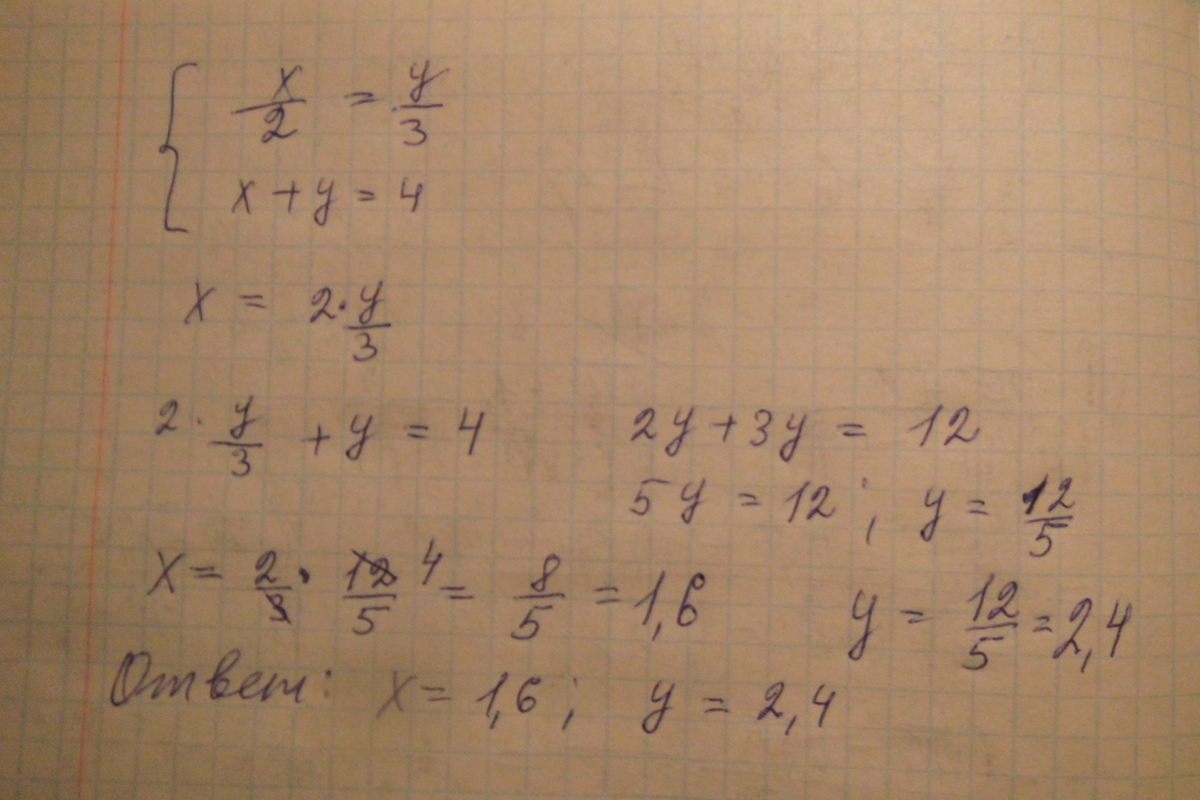 x/2 = y/3
x + y = 4
x = 2 · y/3
2 · y/3 + y = 4
2y + 3y = 12
5y = 12 ; y = 12/5
x = 2/3 · 12/5 4 = 8/5 = 1,6
y = 12/5 = 2,4
Ответ: x = 1,6 ; y = 2,4